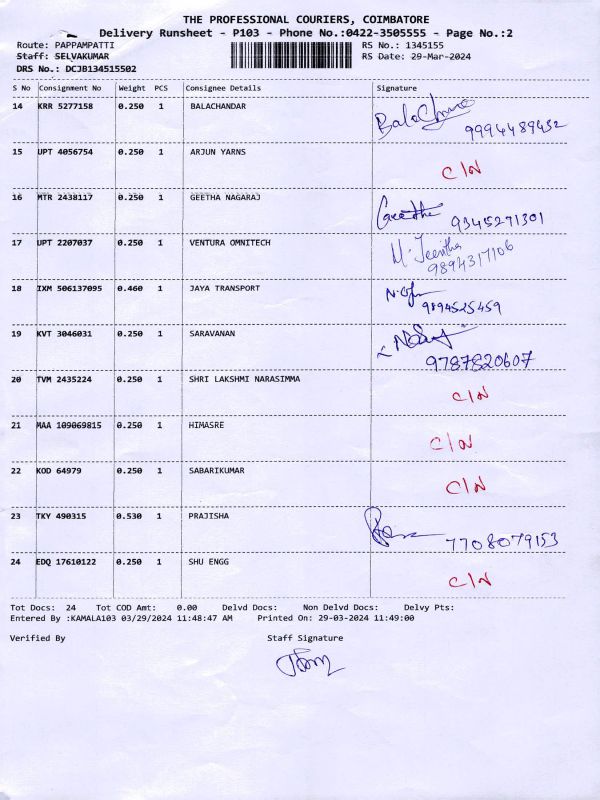 THE PROFESSIONAL COURIERS, COIMBATORE
Delivery Runsheet - P103 - Phone No.:0422-3505555 - Page No.:2
Route: PAPPAMPATTI RS No.: 1345155
Staff: SELVAKUMAR RS Date: 29-Mar-2024
DRS No.: DCJB134515502
S No Consignment No Weight PCS Consignee Details Signature
14 KRR 5277158 0.250 1 BALACHANDAR
9994489432
15 UPT 4056754 0.250 1 ARJUN YARNS C/N
16 MTR 2438117 0.250 1 GEETHA NAGARAJ Geetha 9345271301
17 UPT 2207037 0.250 1 VENTURA OMNITECH
9894317106
18 IXM 506137095 0.460 1 JAYA TRANSPORT
9894525459
19 KVT 3046031 0.250 1 SARAVANAN
9787820607
20 TVM 2435224 0.250 1 SHRI LAKSHMI NARASIMMA C/N
21 MAA 109069815 0.250 1 HIMASRE C/N
22 KOD 64979 0.250 1 SABARIKUMAR C/N
23 TKY 490315 0.530 1 PRAJISHA
7708079153
24 EDQ 17610122 0.250 1 SHU ENGG C/N
Tot Docs: 24 Tot COD Amt: 0.00 Delvd Docs: Non Delvd Docs: Delvy Pts:
Entered By :KAMALA103 03/29/2024 11:48:47 AM Printed On: 29-03-2024 11:49:00
Verified By Staff Signature